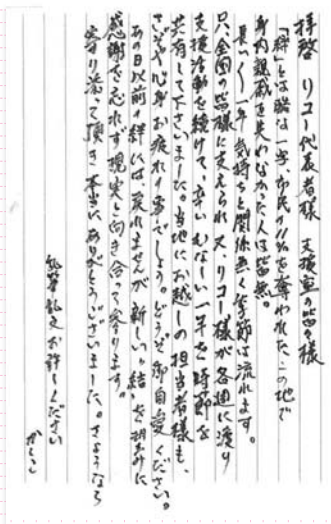 拝啓 リコー代表者様 支援室の皆々様
「絆」とは酷な一字、市民の1%を奪われたこの地で
身内親戚を失わなかった人は皆無。
長い〱一年 気持ちと関係無く季節は流れます。
只、全国の皆様に支えられ 又、リコー様が各週に渡り
支援活動を続けて、辛いむなしい一年を時節を
共有して下さいました。当地にお越しの担当者様も、
さぞや心身お疲れの事でしょう。どうぞ御自愛ください。
あの日以前の絆には、戻れませんが新しい"結"を胡きみに
感謝を忘れず現実と向き合って参ります。
寄り添って頂き本当にありがとうございました。さようなら
乱筆乱文お許しください